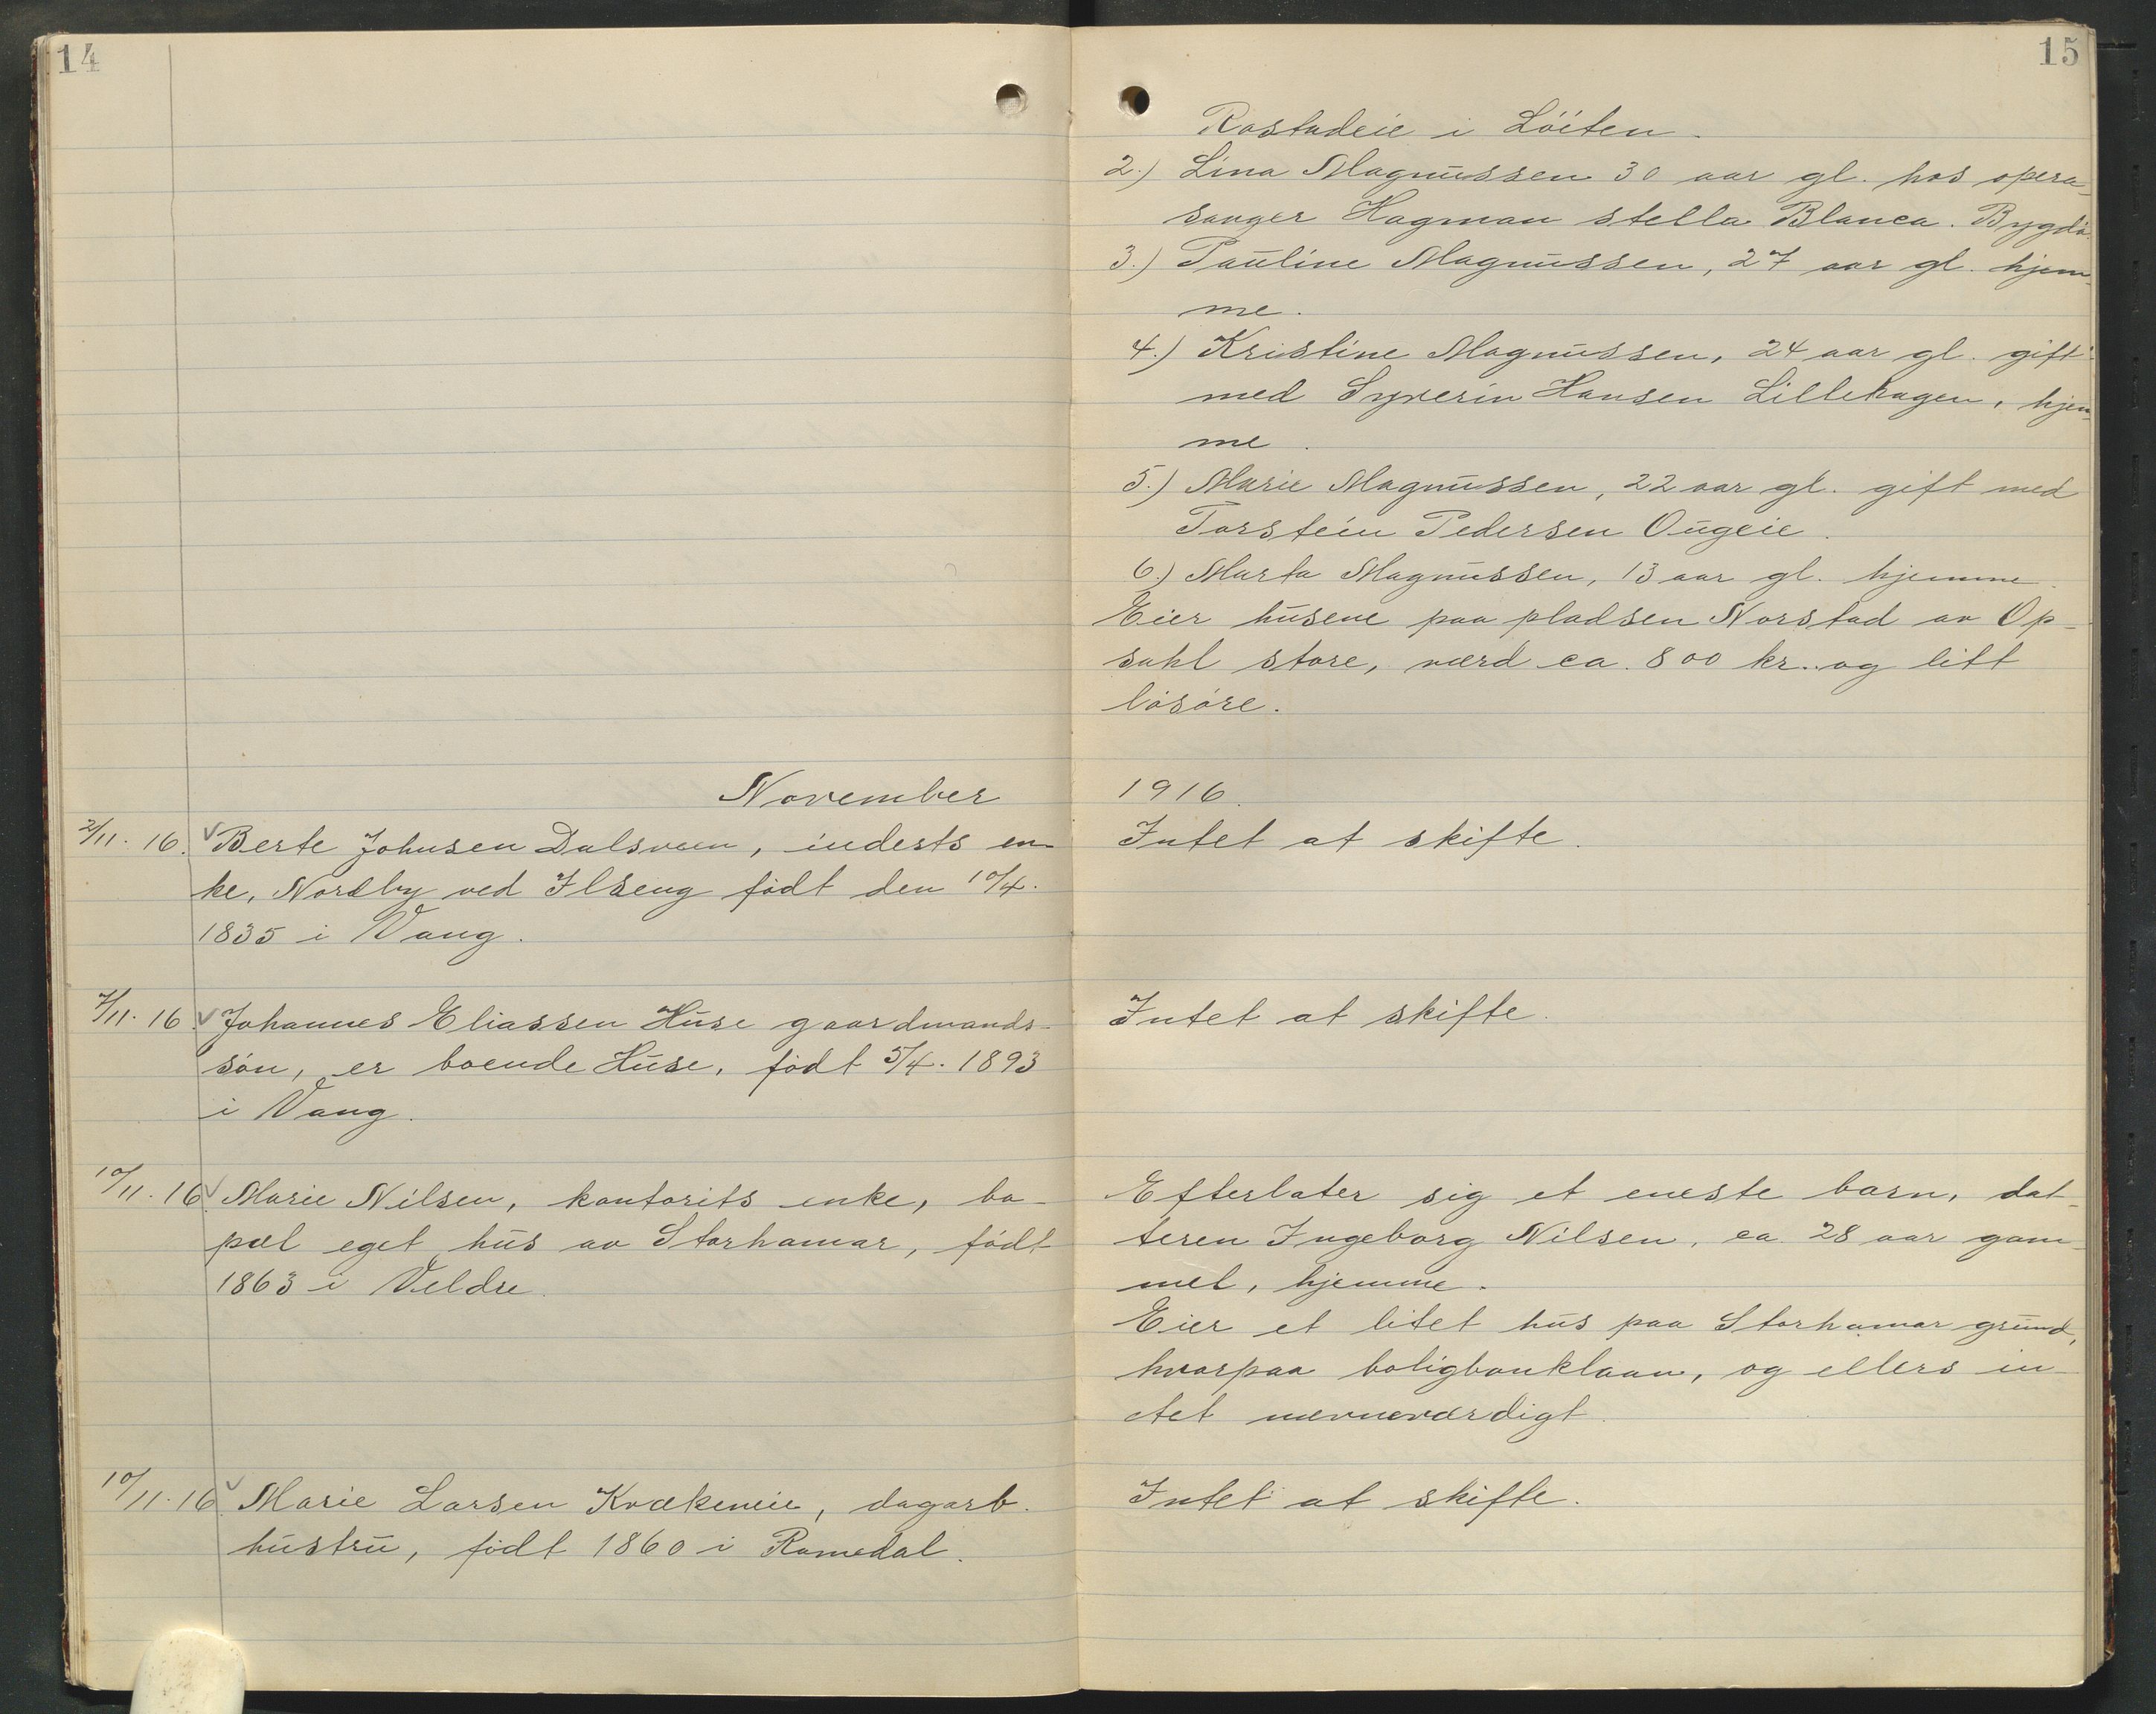 14
November
2/11. 16. Berte Johnsen Dalsveen, inderts en-
ke, Nordby ved Ilseng født den 10/4.
1835 i Vang.
7/11. 16. Johannes Eliassen Huse gaardmands-
søn, er boende Huse, født 5/4. 1893
i Vang.
10/11. 16. Marie Nilsen, kontorits enke, bo-
pæl eget hus av Storhamar, født
1863 i Veldre.
10/11. 16. Marie Larsen Kvækeneie, dagarb.
hustru, født 1860 i Romedal.
15
Rostadeie i Löiten.
2.) Lina Magnussen 30 aar gl. hos opera-
sanger Hagman stella Blanca. Bygdö.
3.) Pauline Magnussen, 27 aar gl. hjem-
me.
4.) Kristine Magnussen, 24 aar gl. gift
med Syverin Hansen Lillehagen, hjem-
me.
5.) Marie Magnussen, 22 aar gl. gift med
Torstein Pedersen Ougeie.
6.) Marta Magnussen, 13 aar gl. hjemme.
Eier husene paa pladsen Norstad av Op-
sahl store, værd ca. 800 kr. og litt
løsøre.
1916.
Intet at skifte.
Intet at skifte.
Efterlater sig et eneste barn, dat-
teren Ingeborg Nilsen, ca. 28 aar gam-
mel, hjemme.
Eier et litet hus paa Storhamar grund,
hvorpaa boligbanklaan, og ellers in-
tet nævneværdigt.
Intet at skifte.